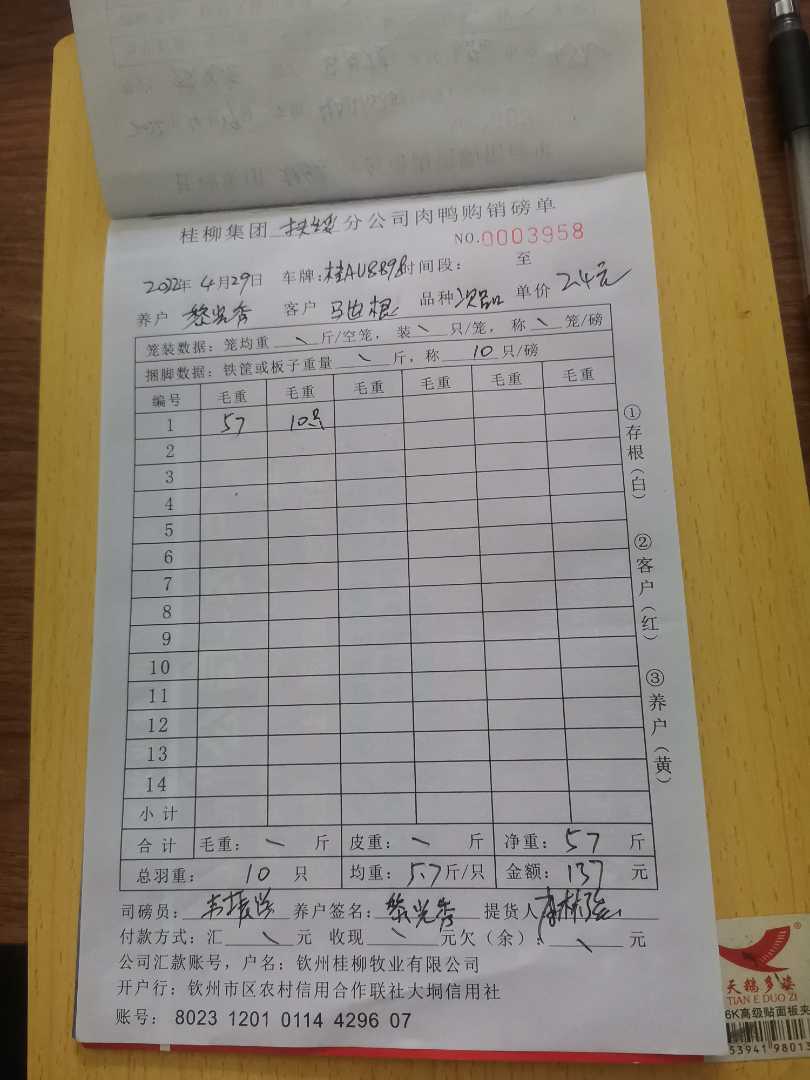 桂柳集团 扶绥 分公司肉鸭购销磅单
NO.0003958
2022年 4月29日 车牌:桂AU8898 时间段: 至
养户 黎光秀 客户 马世根 品种 次品 单价 2.4元
笼装数据: 笼均重 \ 斤/空笼, 装 \ 只/笼, 称 \ 笼/磅
捆脚数据: 铁筐或板子重量 \ 斤, 称 10 只/磅
编号 毛重 毛重 毛重 毛重 毛重 毛重
1 57 10只
2
3
4
5
6
7
8
9
10
11
12
13
14
小计
合计 毛重: \ 斤 皮重: \ 斤 净重: 57 斤
总羽重: 10 只 均重: 5.7斤/只 金额: 137 元
司磅员: 养户签名: 黎光秀 提货人
付款方式: 汇 \ 元 收现 \ 元欠(余): \ 元
公司汇款账号, 户名: 钦州桂柳牧业有限公司
开户行: 钦州市区农村信用合作联社大垌信用社
账号: 8023 1201 0114 4296 07
①存根(白)
②客户(红)
③养户(黄)
天鹅多姿
TIAN E DUO ZI
6K高级贴面板夹
53941 98013